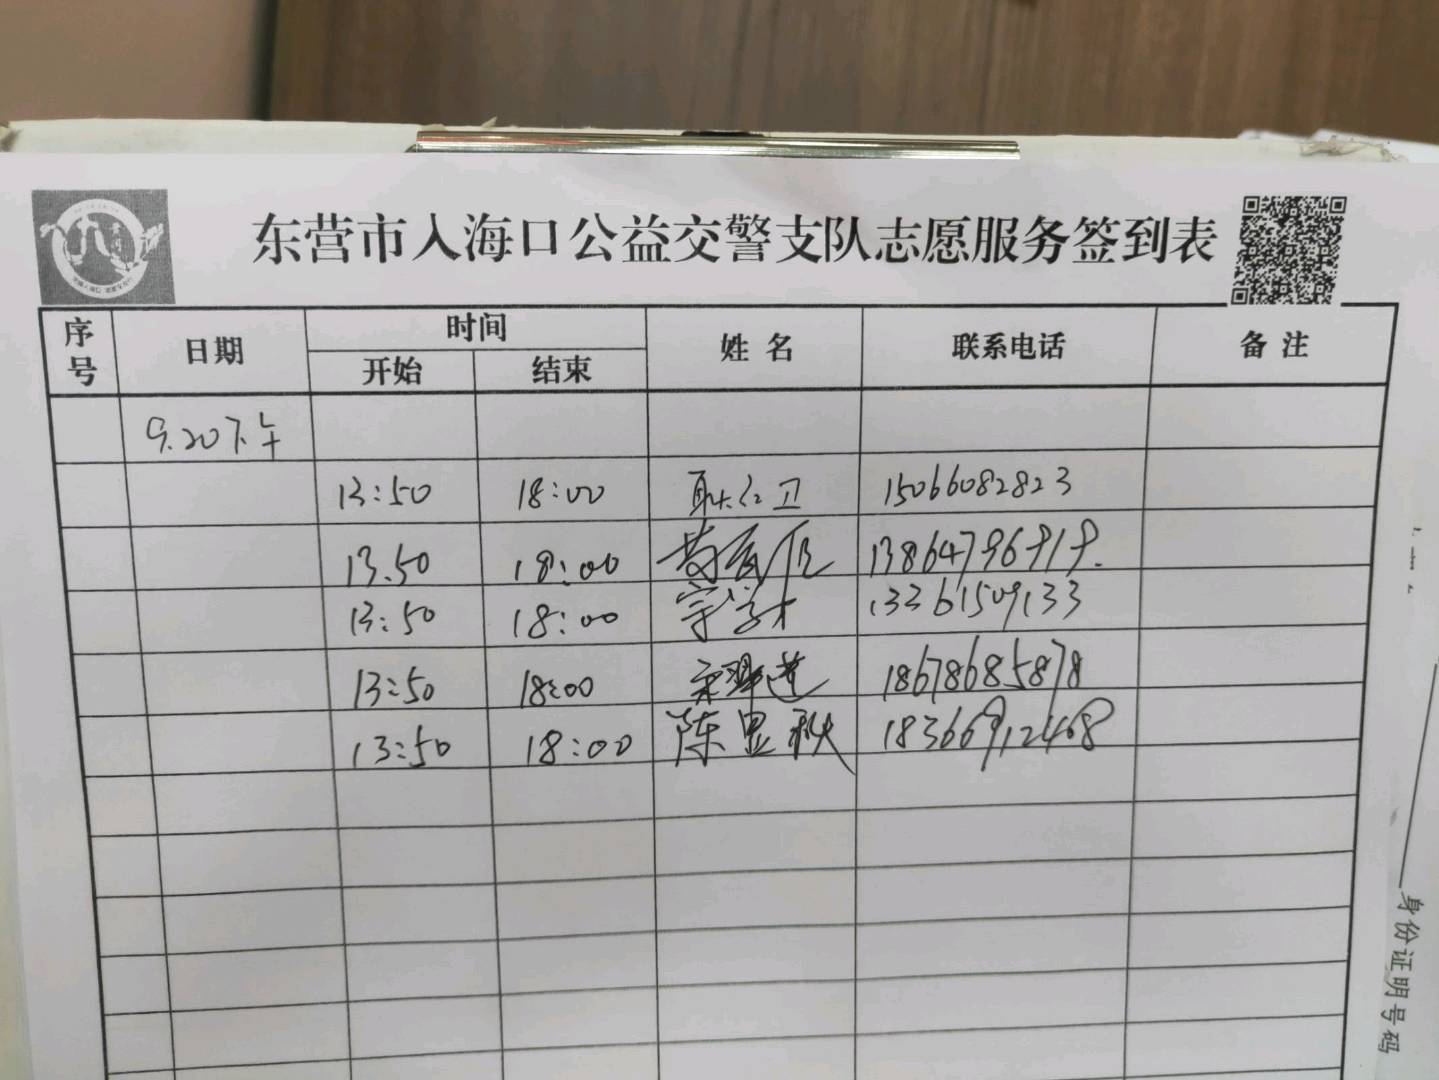 东营市入海口公益交警支队志愿服务签到表
序号 日期 时间 姓名 联系电话 备注
开始 结束
9.20下午
13:50 18:00 耿红卫 15066082823
13.50 18:00 13864796919.
13:50 18:00 宗学才 13361509133
13:50 18:00 18678685878
13:50 18:00 陈显秋 18366912468
身份证明号码